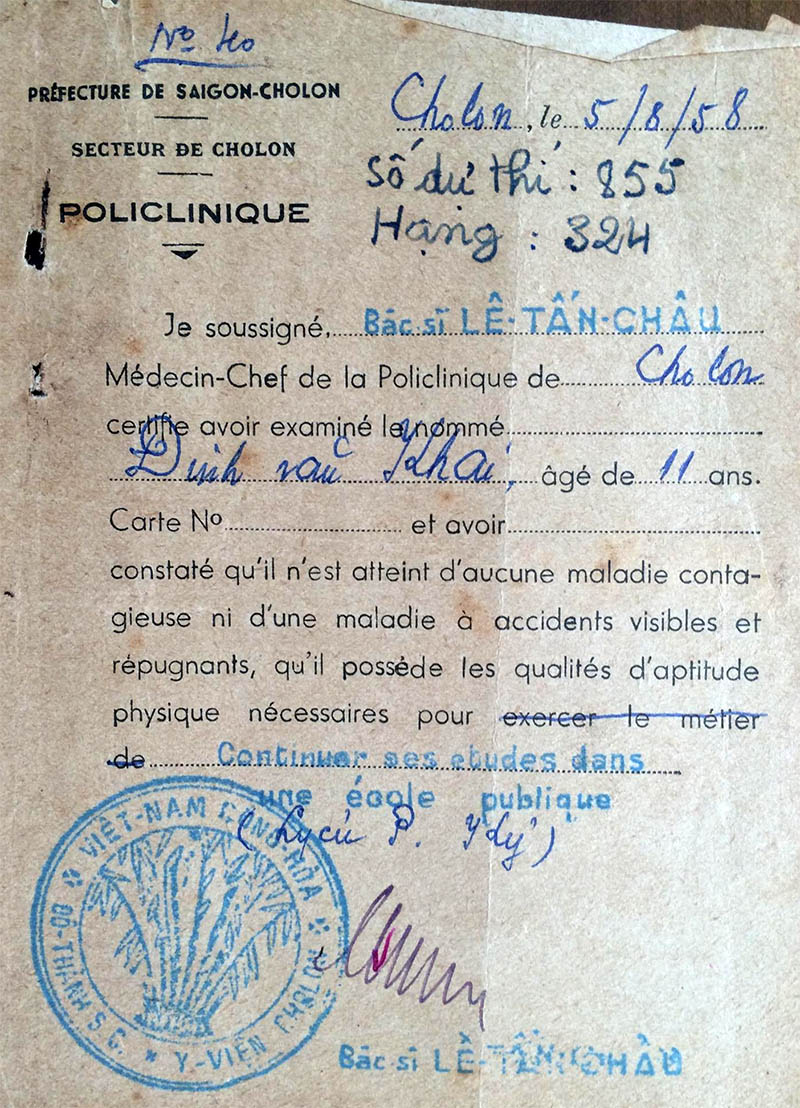 Nº 40
PRÉFECTURE DE SAIGON-CHOLON
SECTEUR DE CHOLON
POLICLINIQUE
Cholon, le 5/8/58
Số dự thí : 855
Hạng : 324
Je soussigné, Bác sĩ LÊ-TẤN-CHÂU
Médecin-Chef de la Policlinique de Cholon
certifie avoir examiné le nommé
Đinh văn Khai, âgé de 11 ans.
Carte Nº et avoir
constaté qu'il n'est atteint d'aucune maladie conta-
gieuse ni d'une maladie à accidents visibles et
répugnants, qu'il possède les qualités d'aptitude
physique nécessaires pour exercer le métier
de Continuer ses etudes dans
une école publique
( P. )
VIỆT-NAM CỘNG-HÒA
ĐÔ-THÀNH S.G. * Y-VIỆN CHOLON
Bác sĩ LÊ-TẤN-CHÂU